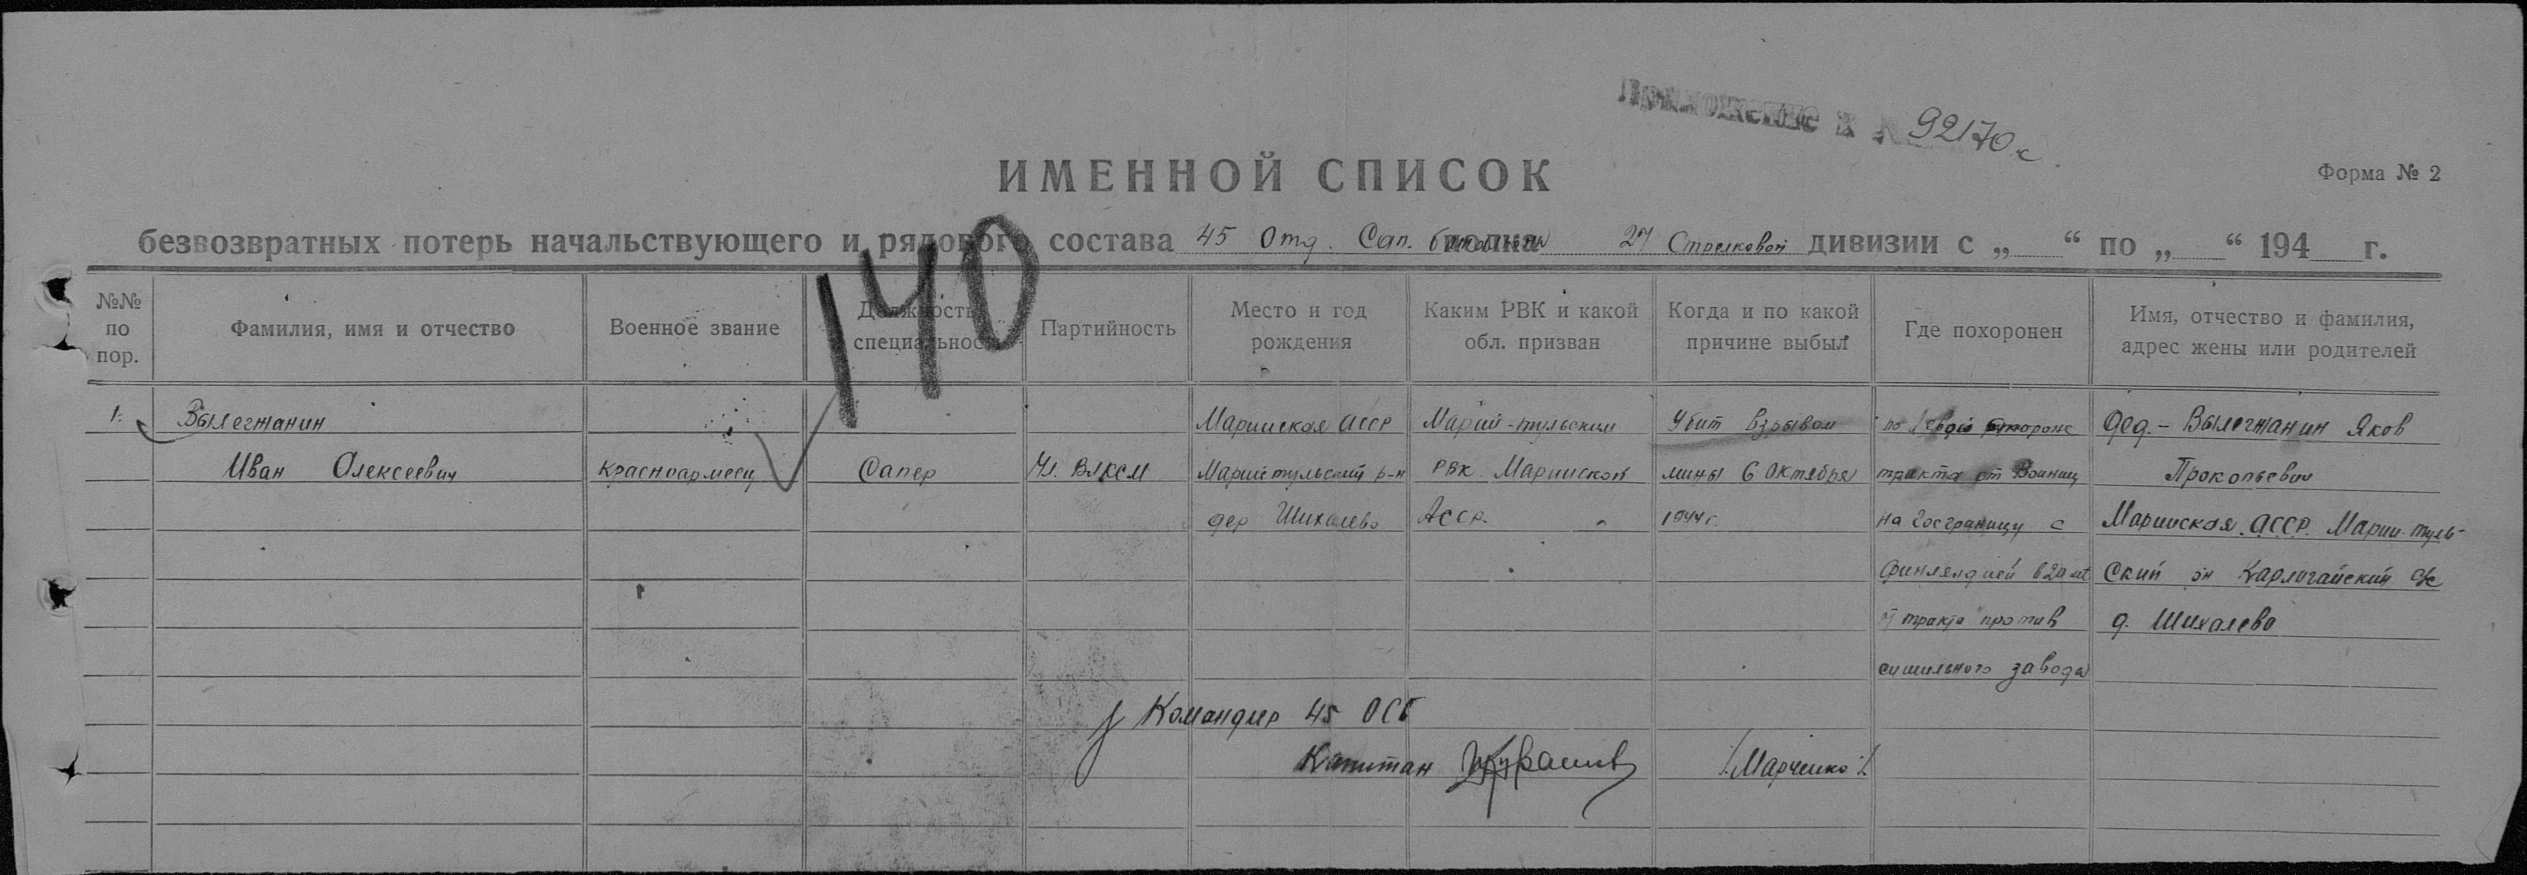 Приложение к № 92170с.
ИМЕННОЙ СПИСОК
Форма № 2
безвозвратных потерь начальствующего и рядового состава 45 Отд. Сап. батальон 27 Стрелковой дивизии с „ “ по „ “ 194 г.
140
№№ по пор.
Фамилия, имя и отчество
Военное звание
Должность специальность
Партийность
Место и год рождения
Каким РВК и какой обл. призван
Когда и по какой причине выбыл
Где похоронен
Имя, отчество и фамилия, адрес жены или родителей
1. Вылегжанин Марийская АССР Марий-турекским Убит взрывом по левой стороне Дед. - Вылегжанин Яков
Иван Алексеевич Красноармеец Сапер Чл. ВЛКСМ р-н РВК Марийской мины 6 Октября тракта от Войниц Прокопьевич
дер Шихалево АССР. 1944 г. на Госграницу с Марийская АССР. Марий-
Финляндией в 20 мт ский с/с
тракта против д. Шихалево
завода
Командир 45 ОСБ
Капитан /Марченко/